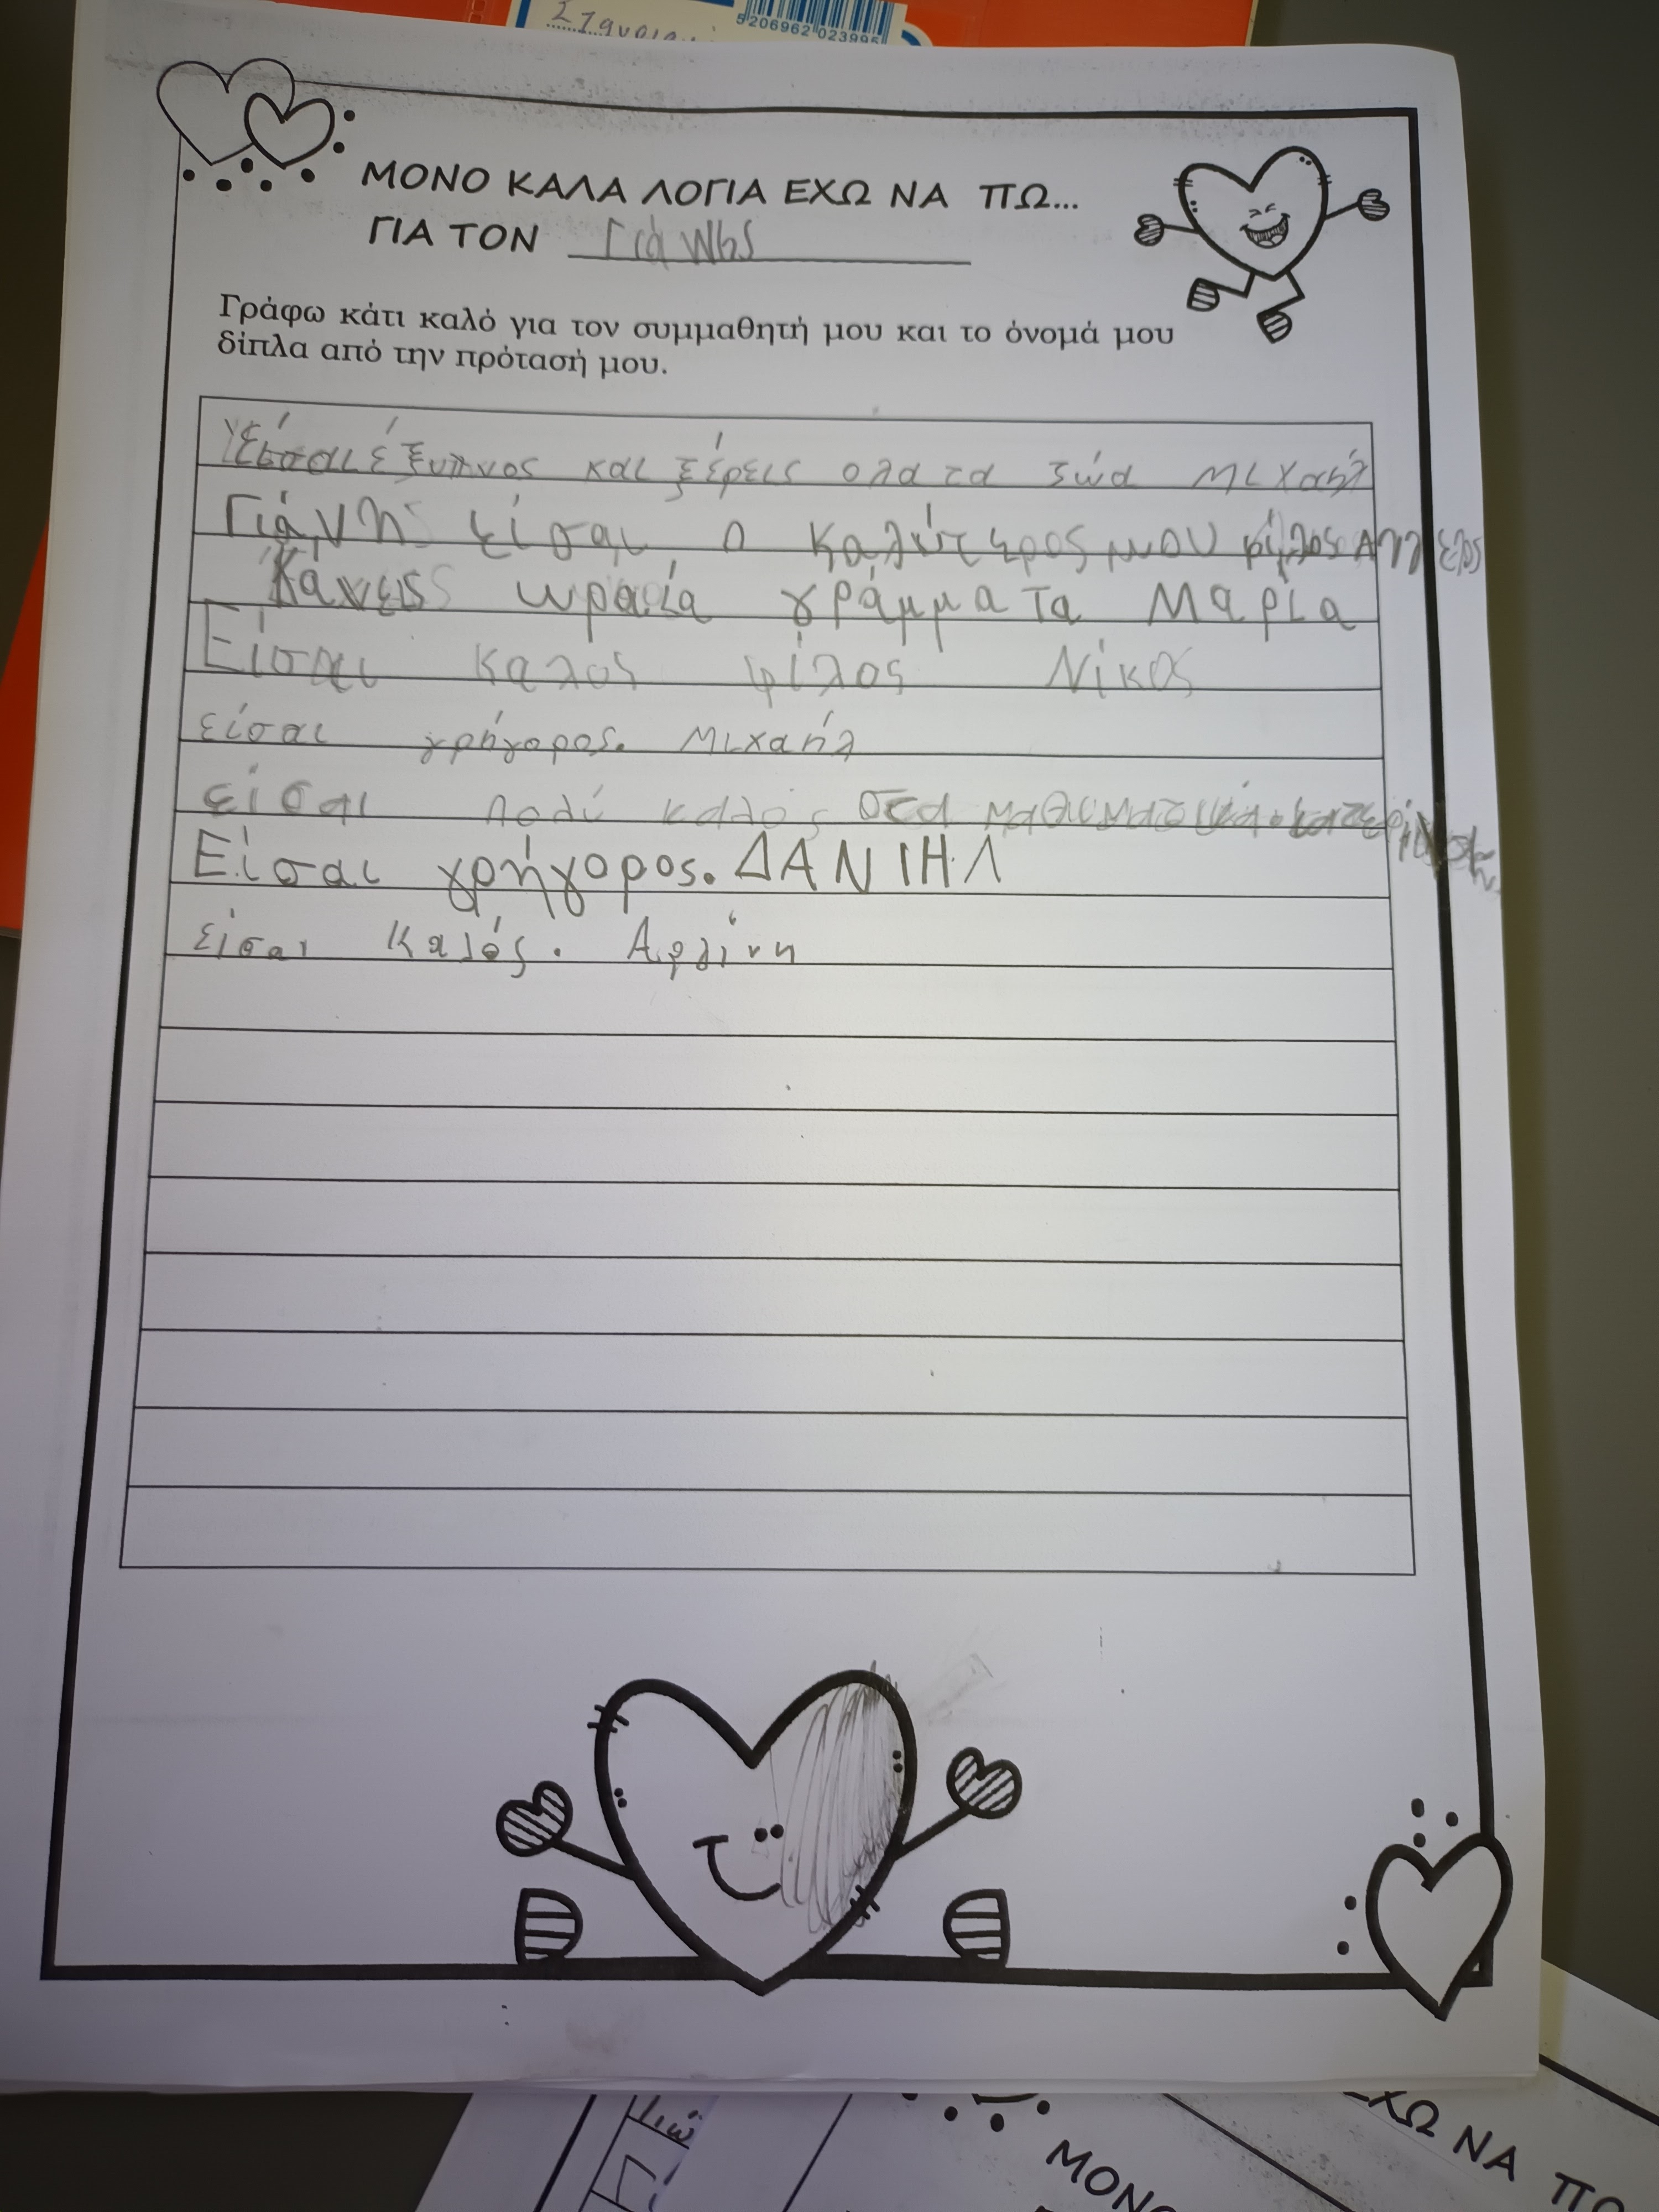 5206962 023995
ΜΟΝΟ ΚΑΛΑ ΛΟΓΙΑ ΕΧΩ ΝΑ ΠΩ...
ΓΙΑ ΤΟΝ Γιάννης
Γράφω κάτι καλό για τον συμμαθητή μου και το όνομά μου
δίπλα από την πρότασή μου.
Είσαι έξυπνος και ξέρεις ολα τα ζώα Μιχαήλ
Γιάννη είσαι ο καλύτερος μου φίλος Άγγελος
Κάνεις ωραία γράμματα Μαρία
Είσαι καλός φίλος Νίκος
είσαι γρήγορος. Μιχαήλ
είσαι πολύ καλός στα μαθιματικά.
Είσαι γρήγορος. ΔΑΝΙΗΛ
είσαι καλός.
ΜΟΝΟ
ΕΧΩ ΝΑ ΠΩ